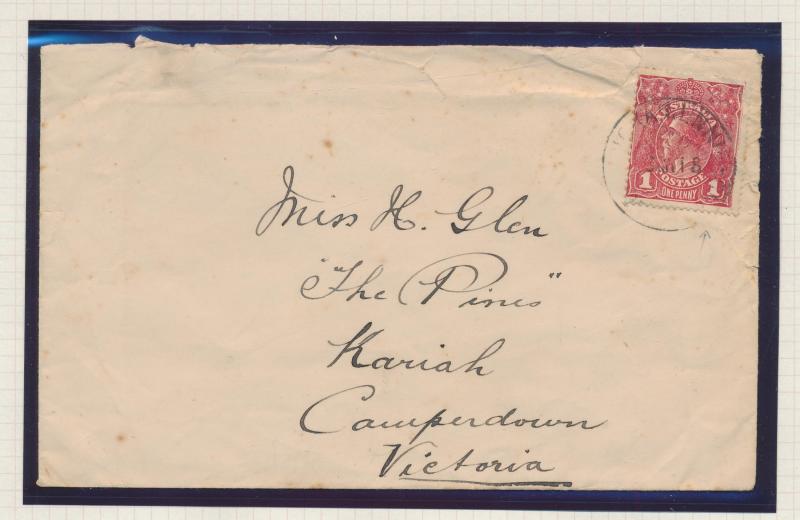 AUSTRALIA
POSTAGE
1 ONE PENNY 1
Miss H. Glen
"The Pines"
Kariah
Camperdown
Victoria